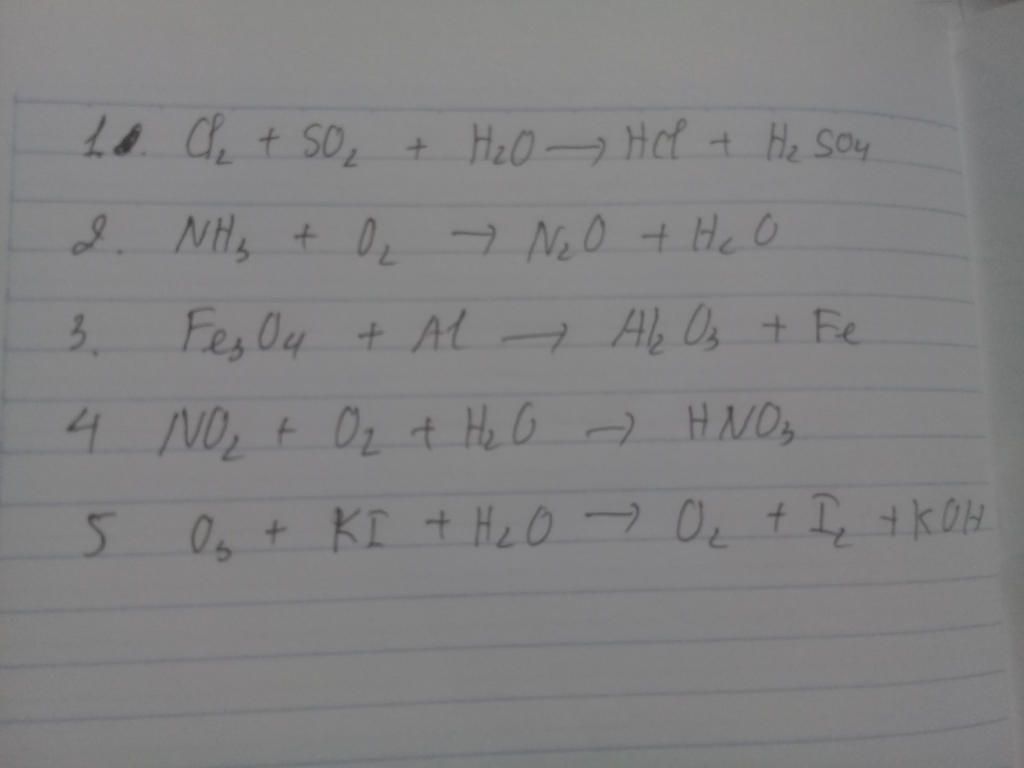 1. Cl₂ + SO₂ + H₂O → HCl + H₂SO₄
2. NH₃ + O₂ → N₂O + H₂O
3. Fe₃O₄ + Al → Al₂O₃ + Fe
4 NO₂ + O₂ + H₂O → HNO₃
5 O₃ + KI + H₂O → O₂ + I₂ + KOH